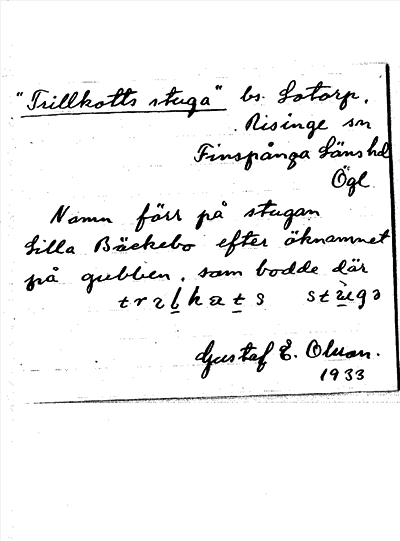 "Trillkotts stuga" bs. Lotorp.
Risinge sn
Finspånga Läns hd
Ögl.
Namn förr på stugan
Lilla Bäckebo efter öknamnet
på gubben, som bodde där
Gustaf E. Olsson.
1933